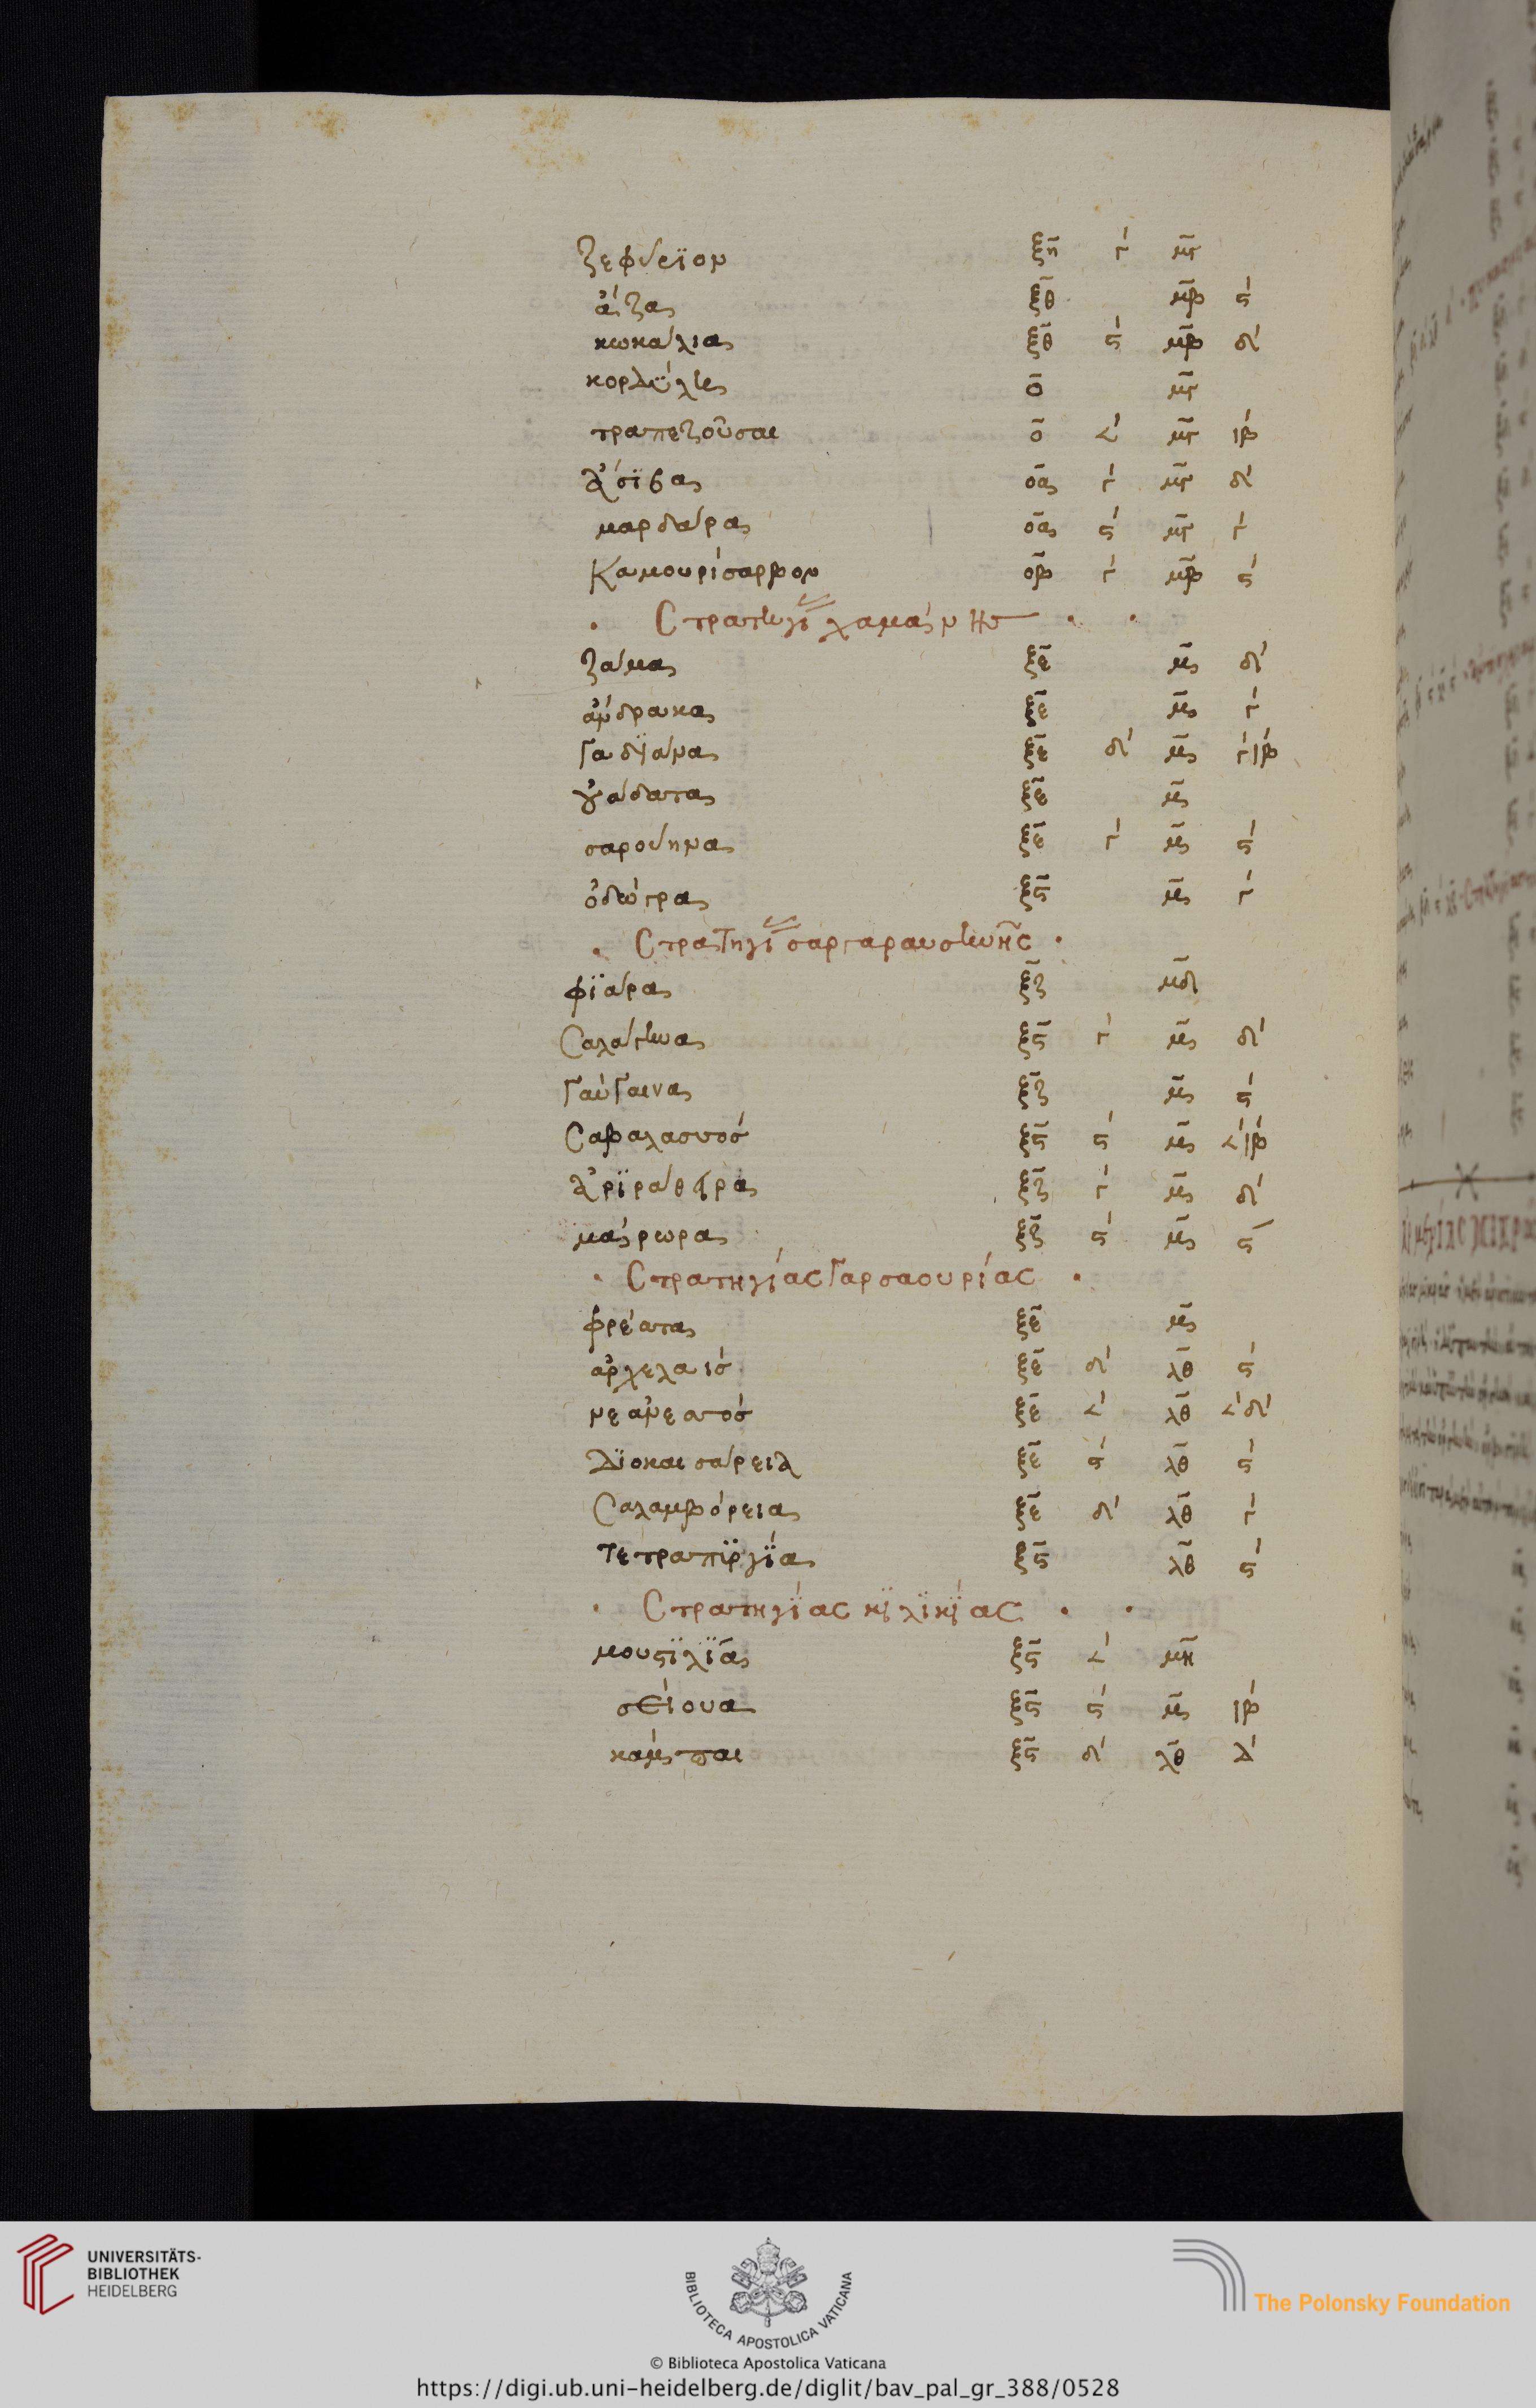 ζεφύρϊον ξη̄ γ΄ μγ̄
ἄζα ξθ̄ μβ̄ ϛ΄
κωκάλια ξθ̄ ϛ΄ μβ̄ δ΄
κορδΰλη ο̄ μγ̄
τραπεζοῦσαι ο̄ <΄ μγ̄ ιβ΄
ἄσϊβα οᾱ γ΄ μγ̄ δ΄
μαρδάρα οᾱ ϛ΄ μγ̄ γ΄
Καμουρίσαρβον οβ̄ γ΄ μβ̄ ϛ΄
Στρατηγί χαμάνης
ζάμα ξε̄ μ̄ δ΄
ἄνδρακα ξε̄ μ̄ γ΄
Γαδϊάνα ξε̄ δ΄ μ̄ γ΄ιβ΄
ὀυάδατα ξε̄ μ̄
σαρούηνα ξε̄ γ΄ μ̄ ϛ΄
ὀδώγρα ξϛ̄ μ̄ γ΄
Στρατηγί σαργαραυσηνῆς
φϊάρα ξζ̄ μδ̄
Σαλάγηνα ξϛ̄ γ΄ μ̄ δ΄
Γαύγαινα ξζ̄ μ̄ ϛ΄
Σαβαλασσός ξϛ̄ ϛ΄ μ̄ <΄ιβ΄
ἀρϊράθηρα ξζ̄ γ΄ μ̄ δ΄
μάρωρα ξζ̄ ϛ΄ μ̄ ϛ΄
Στρατηγίας Γαρσαουρίας
φρέατα ξε̄ μ̄
ἀρχελαισ ξε̄ δ΄ λθ̄ ϛ΄
νεανεσσός ξε̄ <΄ λθ̄ <΄δ΄
Δϊοκαισάρεια ξε̄ ϛ΄ λθ̄ ϛ΄
Σαλαμβόρεια ξε̄ δ΄ λθ̄ γ΄
Τετραπϋργϊά ξϛ̄ λθ̄ ϛ΄
Στρατηγϊας κϊλϊκϊας
μουστϊλϊά ξϛ̄ <΄ μη̄
σείουα ξϛ̄ ϛ΄ μ̄ ιβ΄
κάμπαι ξϛ̄ δ΄ λθ̄ δ΄
UNIVERSITÄTS-
BIBLIOTHEK
HEIDELBERG
BIBLIOTECA APOSTOLICA VATICANA
The Polonsky Foundation
© Biblioteca Apostolica Vaticana
https://digi.ub.uni-heidelberg.de/diglit/bav_pal_gr_388/0528